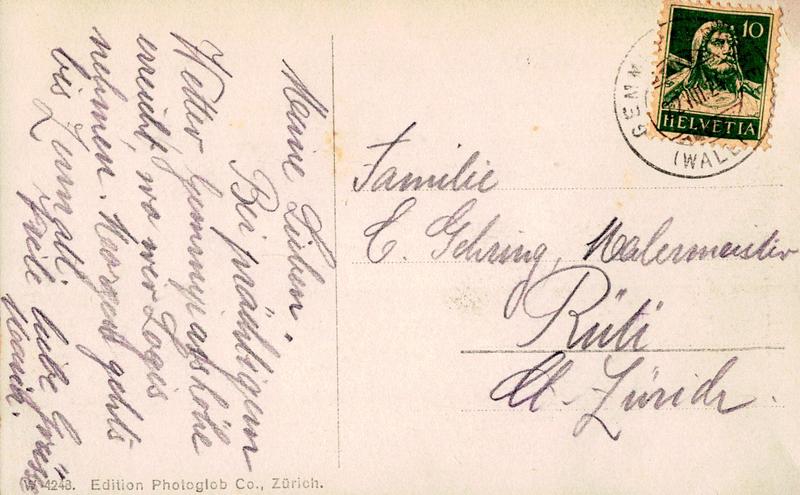 Meine Lieben.
Bei prächtigem
Wetter Gemmipasshöhe
erreicht, wo wir Logis
nehmen. Morgen gehts
bis Zermatt
Viele liebe Grüsse
Familie
C. Gehring, Malermeister
Rüti
Kt. Zürich.
10
HELVETIA
(WALL
W. 4248. Edition Photoglob Co., Zürich.